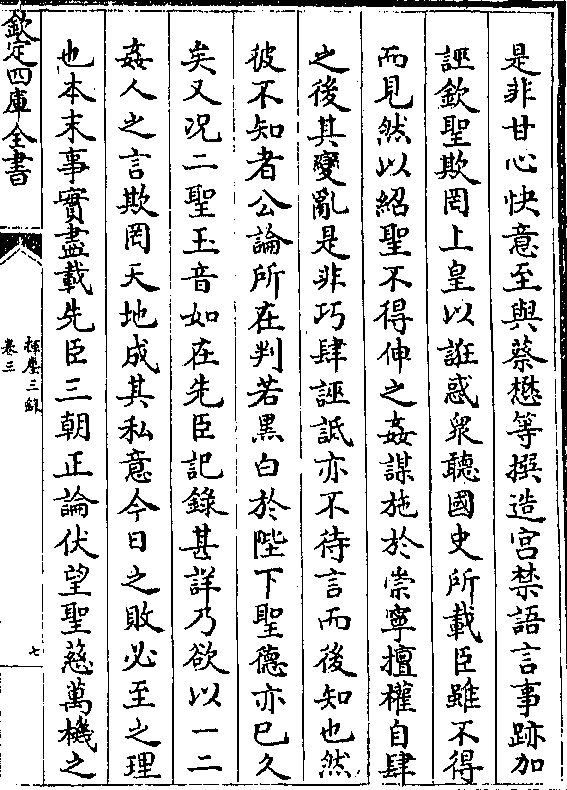 是非甘心快意至與蔡懋等撰造宮禁語言事跡加
誣欽聖欺罔上皇以誑惑衆聽國史所載臣雖不得
而見然以紹聖不得伸之姦謀施於崇寧擅權自肆
之後其變亂是非巧肆誣詆亦不待言而後知也然
彼不知者公論所在判若黒白於陛下聖德亦已久
矣又况二聖玉音如在先臣記錄甚詳乃欲以一二
姦人之言欺罔天地成其私意今日之敗必至之理
也本末事實盡載先臣三朝正論伏望聖慈萬機之
欽定四庫全書
揮麈三録
卷三
七